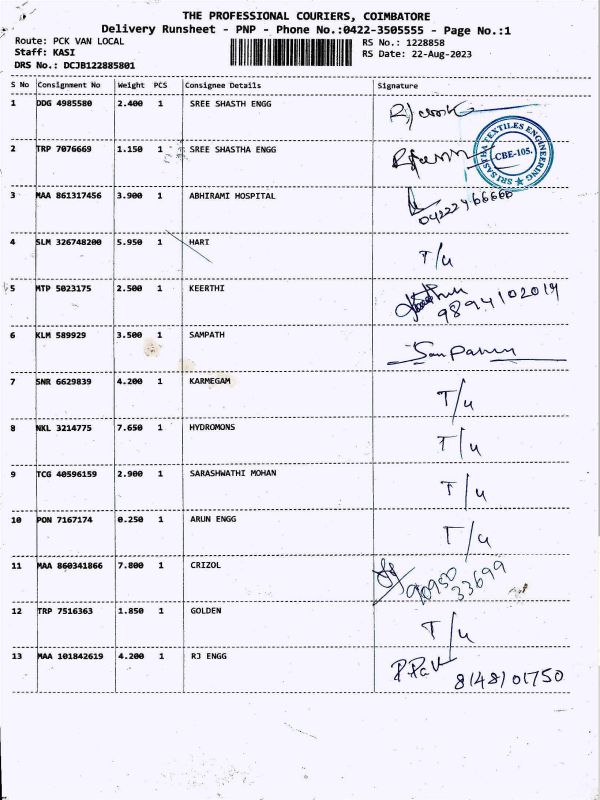 THE PROFESSIONAL COURIERS, COIMBATORE
Delivery Runsheet - PNP - Phone No.:0422-3505555 - Page No.:1
Route: PCK VAN LOCAL RS No.: 1228858
Staff: KASI RS Date: 22-Aug-2023
DRS No.: DCJB122885801
S No Consignment No Weight PCS Consignee Details Signature
1 DDG 4985580 2.400 1 SREE SHASTH ENGG
2 TRP 7076669 1.150 1 SREE SHASTHA ENGG
SRI SASTHA TEXTILES ENGINEERING
CBE-105.
3 MAA 861317456 3.900 1 ABHIRAMI HOSPITAL
4 SLM 326748200 5.950 1 HARI T/u
5 MTP 5023175 2.500 1 KEERTHI 9894102019
6 KLM 589929 3.500 1 SAMPATH
7 SNR 6629839 4.200 1 KARMEGAM T/u
8 NKL 3214775 7.650 1 HYDROMONS T/u
9 TCG 40596159 2.900 1 SARASHWATHI MOHAN T/u
10 PON 7167174 0.250 1 ARUN ENGG T/u
11 MAA 860341866 7.800 1 CRIZOL 90950
33699
12 TRP 7516363 1.850 1 GOLDEN T/u
13 MAA 101842619 4.200 1 RJ ENGG 8148101750